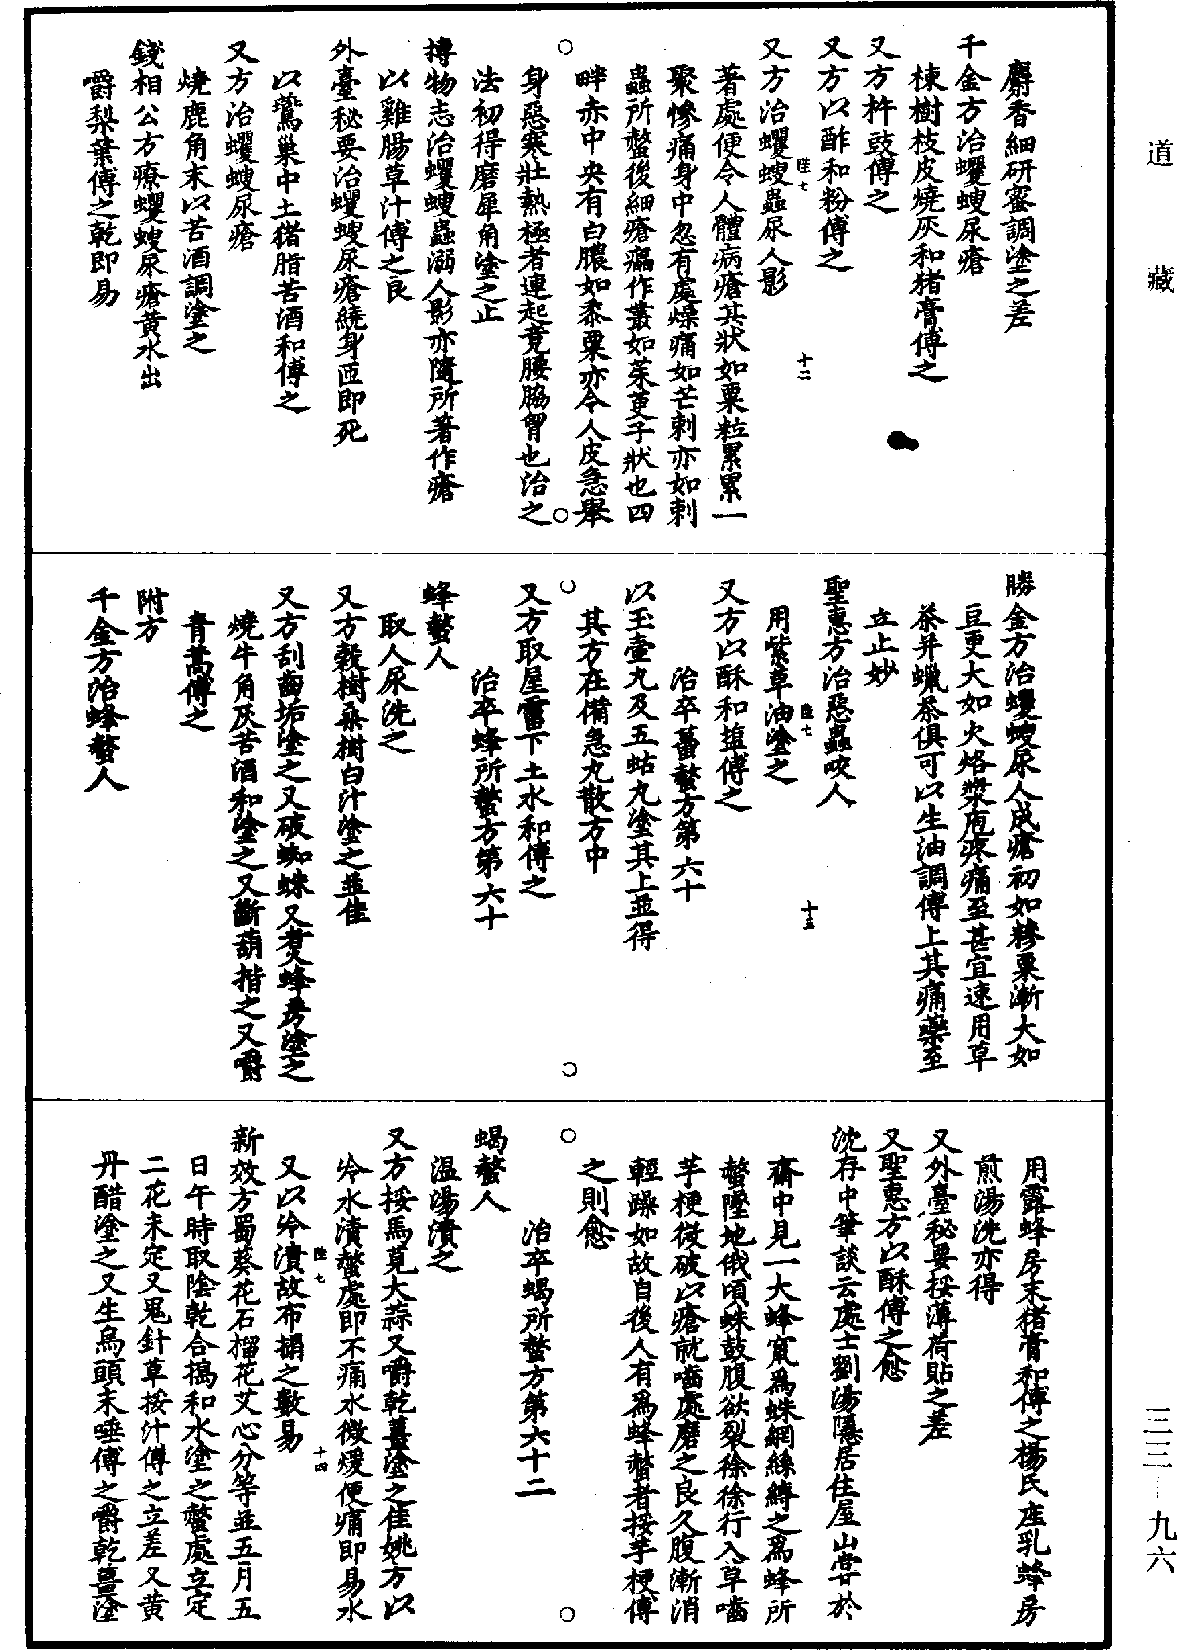 道藏
麝香細研蜜調塗之差
千金方治蠼螋尿瘡
楝樹枝皮燒灰和猪膏傅之
又方杵豉傅之
又方以酢和粉傅之
陸七
十二
又方治蠼螋蟲尿人影
著處便令人體病瘡其狀如粟粒累累一
聚慘痛身中忽有處燥痛如芒刺亦如刺
蟲所螫後細瘡㿔作叢如茱萸子狀也四
畔赤中央有白膿如黍粟亦令人皮急舉
身惡寒壯熱極者連起竟腰脇胷也治之
法初得磨犀角塗之止
博物志治蠼螋蟲溺人影亦隨所著作瘡
以雞腸草汁傅之良
外臺秘要治蠼螋尿瘡繞身匝即死
以鷰巢中土猪脂苦酒和傅之
又方治蠼螋尿瘡
燒鹿角末以苦酒調塗之
錢相公方療蠼螋尿瘡黄水出
嚼梨葉傅之乾即易
勝金方治蠼螋尿人成瘡初如糝粟漸大如
豆更大如火烙漿庖疼痛至甚宜速用草
茶并蠟茶俱可以生油調傅上其痛藥至
立止妙
聖惠方治惡蟲咬人
陸七
十三
用紫草油塗之
又方以酥和塩傅之
治卒蠆螫方第六十
以玉壷丸及五蛄丸塗其上並得
其方在備急丸散方中
又方取屋霤下土水和傅之
治卒蜂所螫方第六十
蜂螫人
取人尿洗之
又方榖樹桑樹白汁塗之並佳
又方刮齒垢塗之又破蜘蛛又煑蜂房塗之
燒牛角灰苦酒和塗之又斷葫揩之又嚼
青蒿傅之
附方
千金方治蜂螫人
用露蜂房末猪膏和傅之楊氏産乳蜂房
煎湯洗亦得
又外臺秘要挼薄荷貼之差
又聖惠方以酥傅之愈
沈存中筆談云處士劉湯隱居住屋山嘗於
齋中見一大蜂窠爲蛛網絲縛之爲蜂所
螫墮地俄頃蛛鼓腹欲裂徐徐行入草嚙
芋梗微破以瘡就嚙處磨之良久腹漸消
輕躁如故自後人有爲蜂螫者挼芋梗傅
之則愈
治卒蝎所螫方第六十二
蝎螫人
温湯漬之
又方挼馬莧大蒜又嚼乾薑塗之佳姚方以
冷水漬螫處即不痛水微煖便痛即易水
陸七
十四
又以冷漬故布搨之數易
新效方蜀葵花石榴花艾心分等並五月五
日午時取陰乾合搗和水塗之螫處立定
二花未定又鬼針草挼汁傅之立差又黄
丹醋塗之又生烏頭末唾傅之嚼乾薑塗
三三—九六